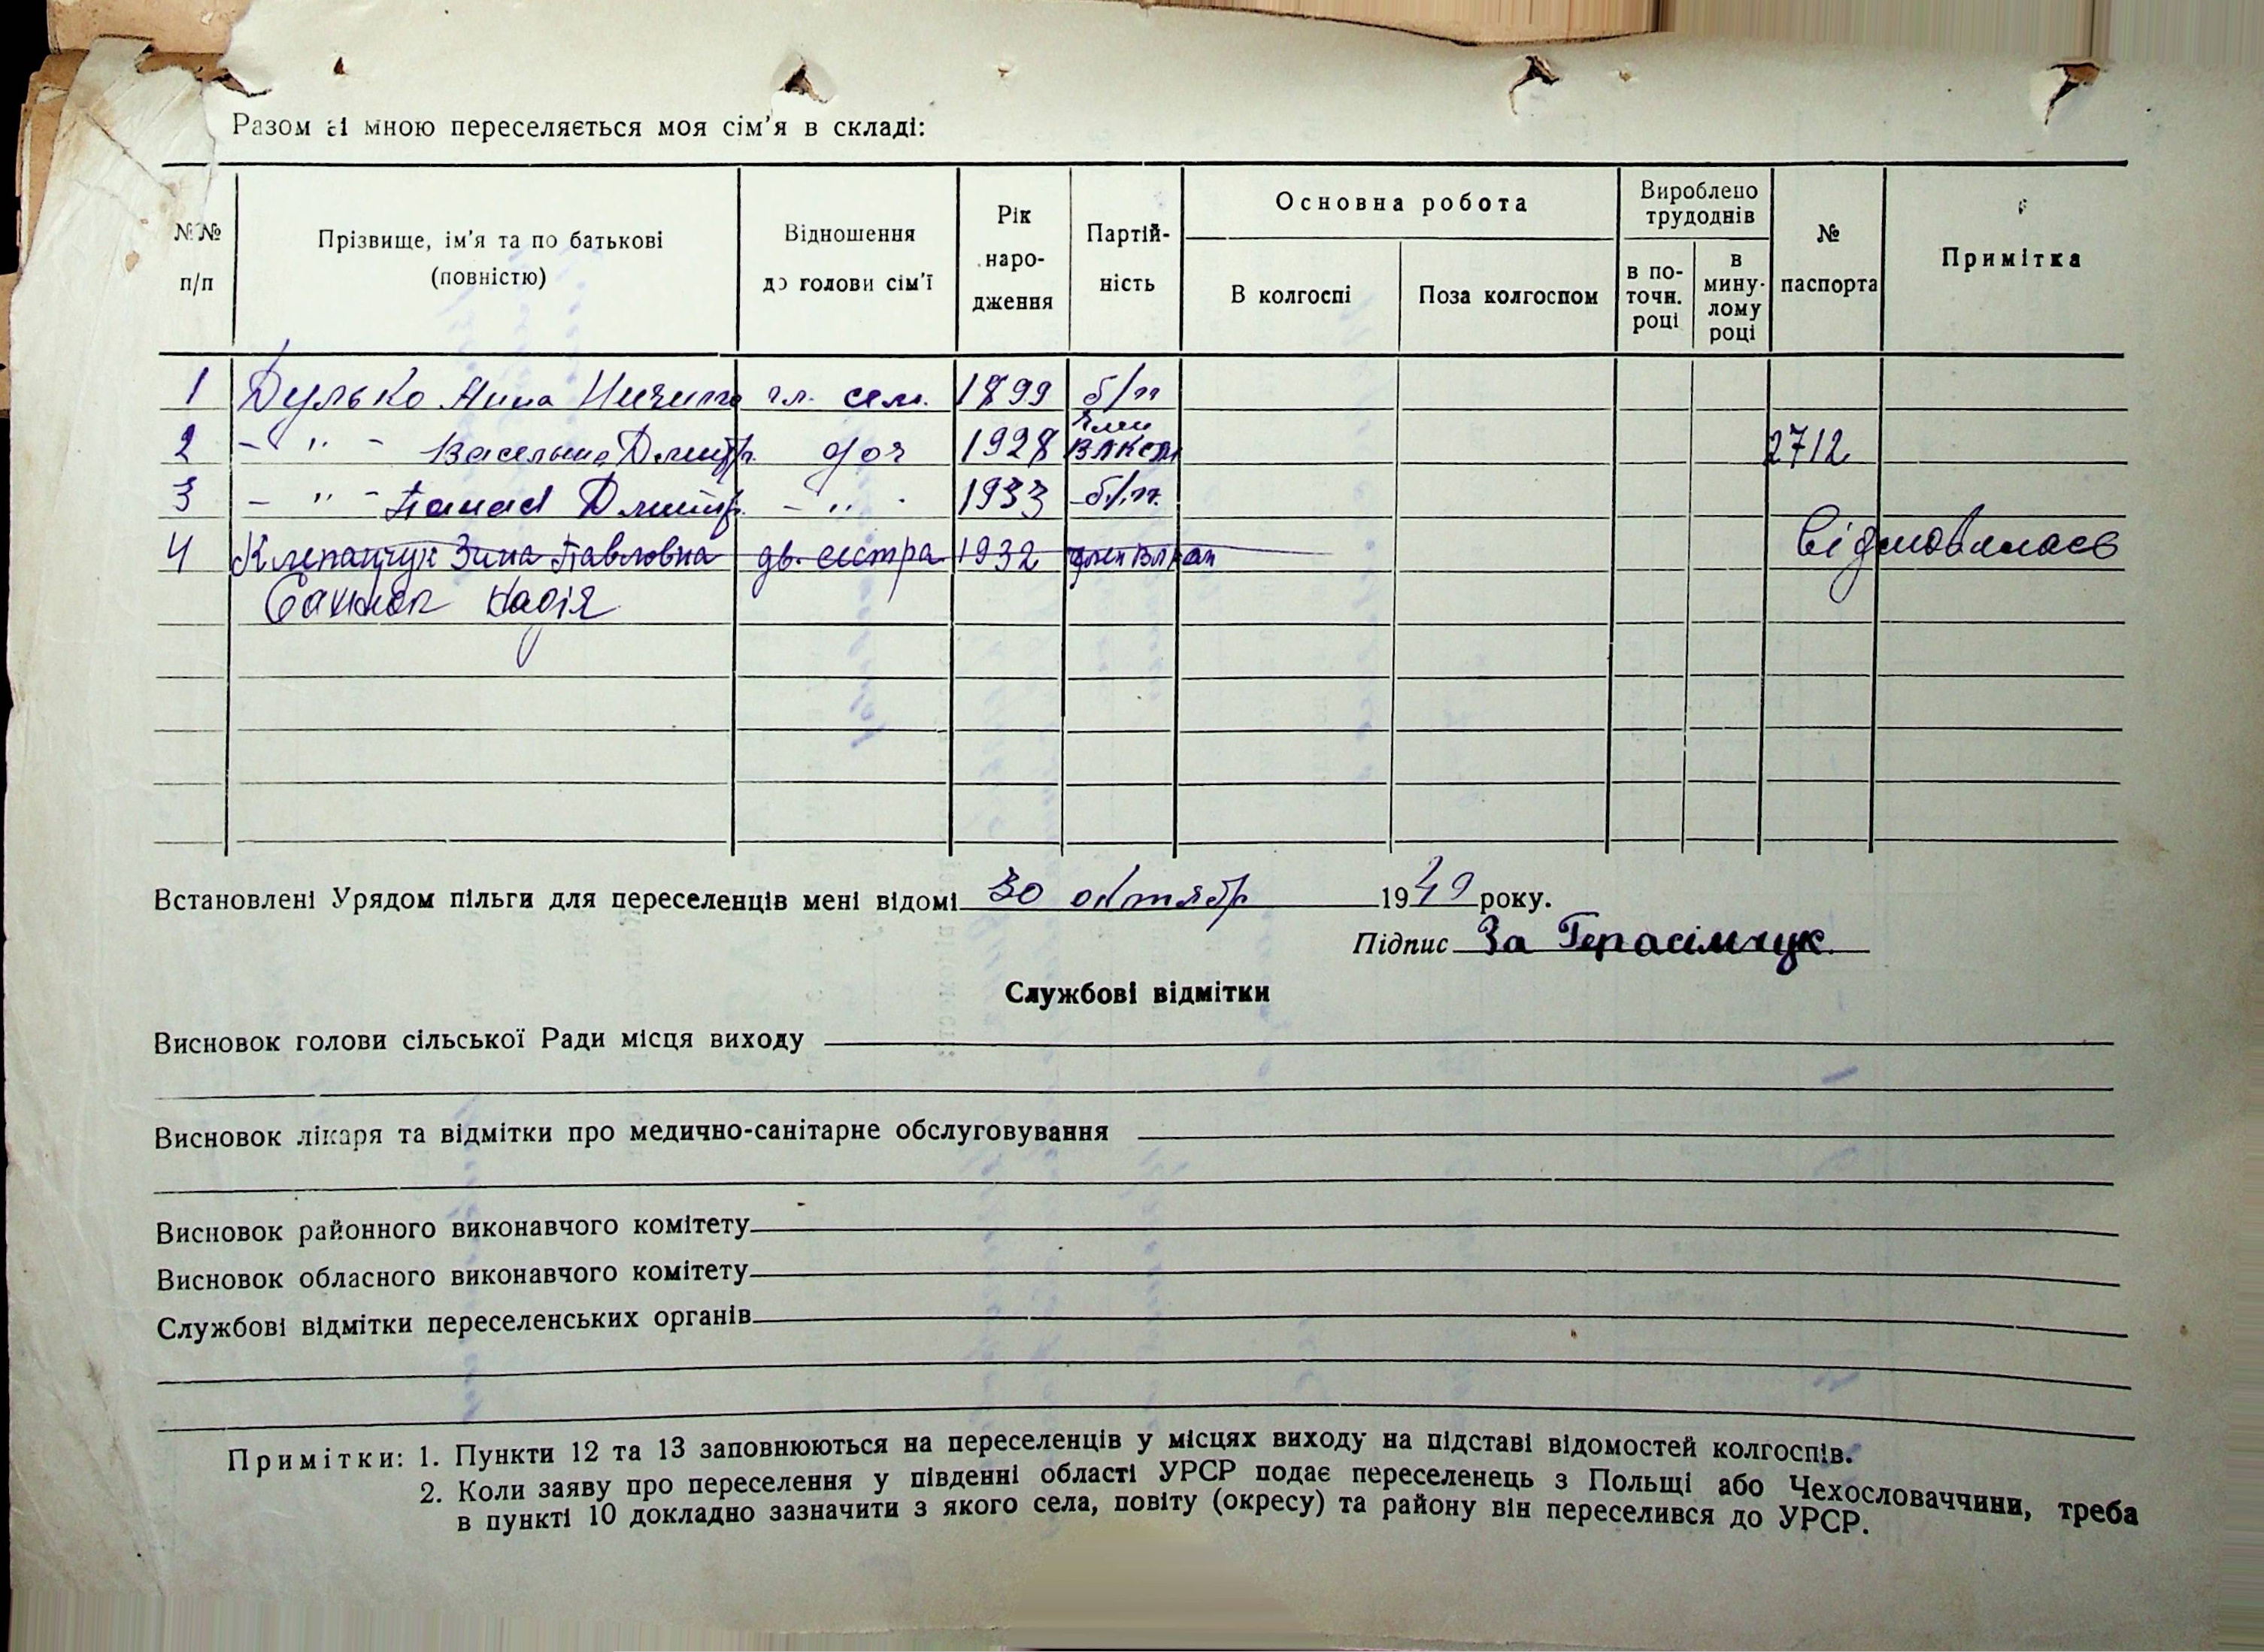 Разом зі мною переселяється моя сім'я в складі:
№№ п/п
Прізвище, ім'я та по батькові (повністю)
Відношення до голови сім'ї
Рік наро-дження
Партій-ність
Основна робота
В колгоспі
Поза колгоспом
Вироблено трудоднів
в по-точн. році
в мину-лому році
№ паспорта
Примітка
1 Дулько Анна гл. сем. 1899 б/п
2 - " - Дмитр. доч 1928 член ВЛКСМ 2712
3 - " - Панас Дмитр. - " - 1933 б/п.
4 Клепанчук Зина Павловна дв. сестра 1932 член Відмовилась
Надія
Встановлені Урядом пільги для переселенців мені відомі 30 октябр 1949 року.
Підпис За Герасімчук
Службові відмітки
Висновок голови сільської Ради місця виходу
Висновок лікаря та відмітки про медично-санітарне обслуговування
Висновок районного виконавчого комітету
Висновок обласного виконавчого комітету
Службові відмітки переселенських органів
Примітки: 1. Пункти 12 та 13 заповнюються на переселенців у місцях виходу на підставі відомостей колгоспів.
2. Коли заяву про переселення у південні області УРСР подає переселенець з Польщі або Чехословаччини, треба
в пункті 10 докладно зазначити з якого села, повіту (окресу) та району він переселився до УРСР.